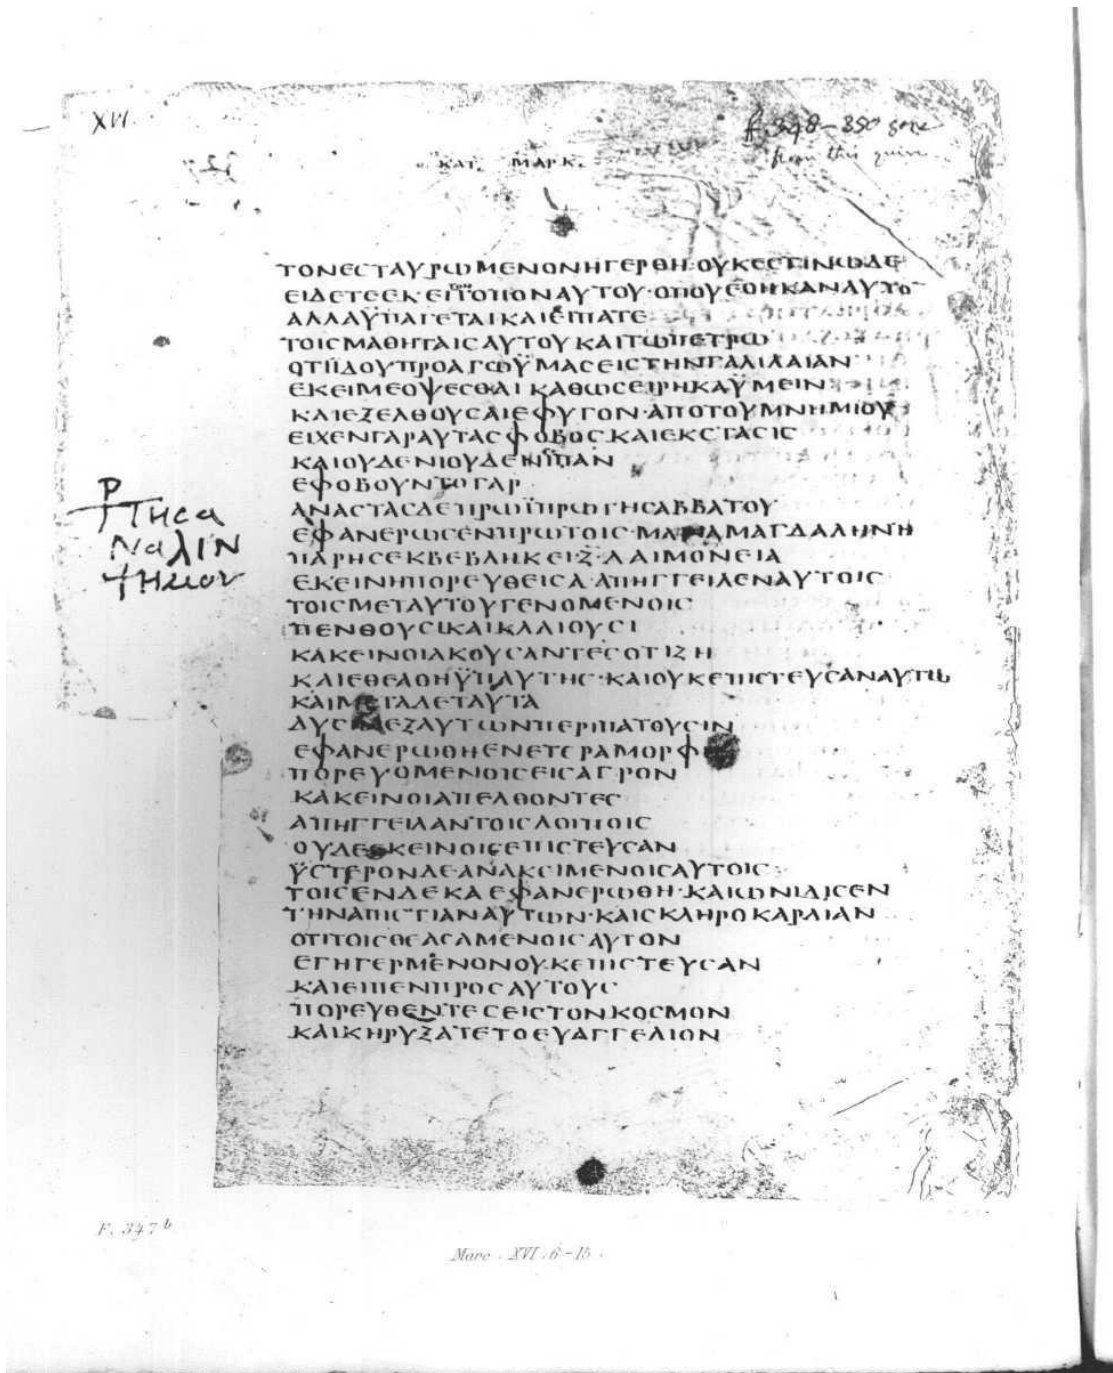 XVI.
ff. 348–350 gone
from this quire
ΚΑΤ. ΜΑΡΚ.
ΤΟΝΕСΤΑΥΡΩΜΕΝΟΝΗΓΕΡΘΗ·ΟΥΚΕСΤΙΝΩΔΕ
ΕΙΔΕΤΕΕΚΕΙΤΟΠΟΝΑΥΤΟΥ·ΟΠΟΥΕΘΗΚΑΝΑΥΤΟ
ΑΛΛΑΫΠΑΓΕΤΑΙΚΑΙΕΙΠΑΤΕ
ΤΟΙСΜΑΘΗΤΑΙСΑΥΤΟΥΚΑΙΤΩΠΕΤΡΩ
ΟΤΙΪΔΟΥΠΡΟΑΓΩΫΜΑСΕΙСΤΗΝΓΑΛΙΛΑΙΑΝ
ΕΚΕΙΜΕΟΨΕСΘΑΙ ΚΑΘΩСΕΙΡΗΚΑΫΜΕΙΝ
ΚΑΙΕΞΕΛΘΟΥСΑΙΕΦΥΓΟΝ·ΑΠΟΤΟΥΜΝΗΜΙΟΥ
ΕΙΧΕΝΓΑΡΑΥΤΑСΦΟΒΟС·ΚΑΙΕΚСΤΑСΙС
ΚΑΙΟΥΔΕΝΙΟΥΔΕΝΪΠΑΝ
ΕΦΟΒΟΥΝΤΟΓΑΡ
ΑΝΑСΤΑСΔΕΠΡΩΪΠΡΩΤΗСΑΒΒΑΤΟΥ
ΕΦΑΝΕΡΩСΕΝΠΡΩΤΟΙС·ΜΑΡΙΑΜΑΓΔΑΛΗΝΗ
ΠΑΡΗСΕΚΒΕΒΛΗΚΕΙΖ·ΔΑΙΜΟΝΕΙΑ
ΕΚΕΙΝΗΠΟΡΕΥΘΕΙСΑ·ΑΠΗΓΓΕΙΛΕΝΑΥΤΟΙС
ΤΟΙСΜΕΤΑΥΤΟΥΓΕΝΟΜΕΝΟΙС
ΠΕΝΘΟΥСΙΚΑΙΚΛΑΙΟΥСΙ
ΚΑΚΕΙΝΟΙΑΚΟΥСΑΝΤΕСΟΤΙΖΗ
ΚΑΙΕΘΕΑΘΗΫΠΑΥΤΗС·ΚΑΙΟΥΚΕΠΙСΤΕΥСΑΝΑΥΤΩ
ΚΑΙΜΕΤΑΔΕΤΑΥΤΑ
ΔΥСΙΝΕΞΑΥΤΩΝΠΕΡΙΠΑΤΟΥСΙΝ
ΕΦΑΝΕΡΩΘΗΕΝΕΤΕΡΑΜΟΡΦΗ
ΠΟΡΕΥΟΜΕΝΟΙСΕΙСΑΓΡΟΝ
ΚΑΚΕΙΝΟΙΑΠΕΛΘΟΝΤΕС
ΑΠΗΓΓΕΙΛΑΝΤΟΙСΛΟΙΠΟΙС
ΟΥΔΕΕΚΕΙΝΟΙСΕΠΙСΤΕΥСΑΝ
ΫСΤΕΡΟΝΔΕΑΝΑΚΕΙΜΕΝΟΙСΑΥΤΟΙС
ΤΟΙСΕΝΔΕΚΑΕΦΑΝΕΡΩΘΗ·ΚΑΙΩΝΙΔΙСΕΝ
ΤΗΝΑΠΙСΤΙΑΝΑΥΤΩΝ·ΚΑΙСΚΛΗΡΟΚΑΡΔΙΑΝ
ΟΤΙΤΟΙСΘΕΑСΑΜΕΝΟΙСΑΥΤΟΝ
ΕΓΗΓΕΡΜΕΝΟΝΟΥΚΕΠΙСΤΕΥСΑΝ
ΚΑΙΕΙΠΕΝΠΡΟСΑΥΤΟΥС
ΠΟΡΕΥΘΕΝΤΕСΕΙСΤΟΝΚΟСΜΟΝ
ΚΑΙΚΗΡΥΞΑΤΕΤΟΕΥΑΓΓΕΛΙΟΝ
F. 347 b
Marc . XVI . 6–15 .